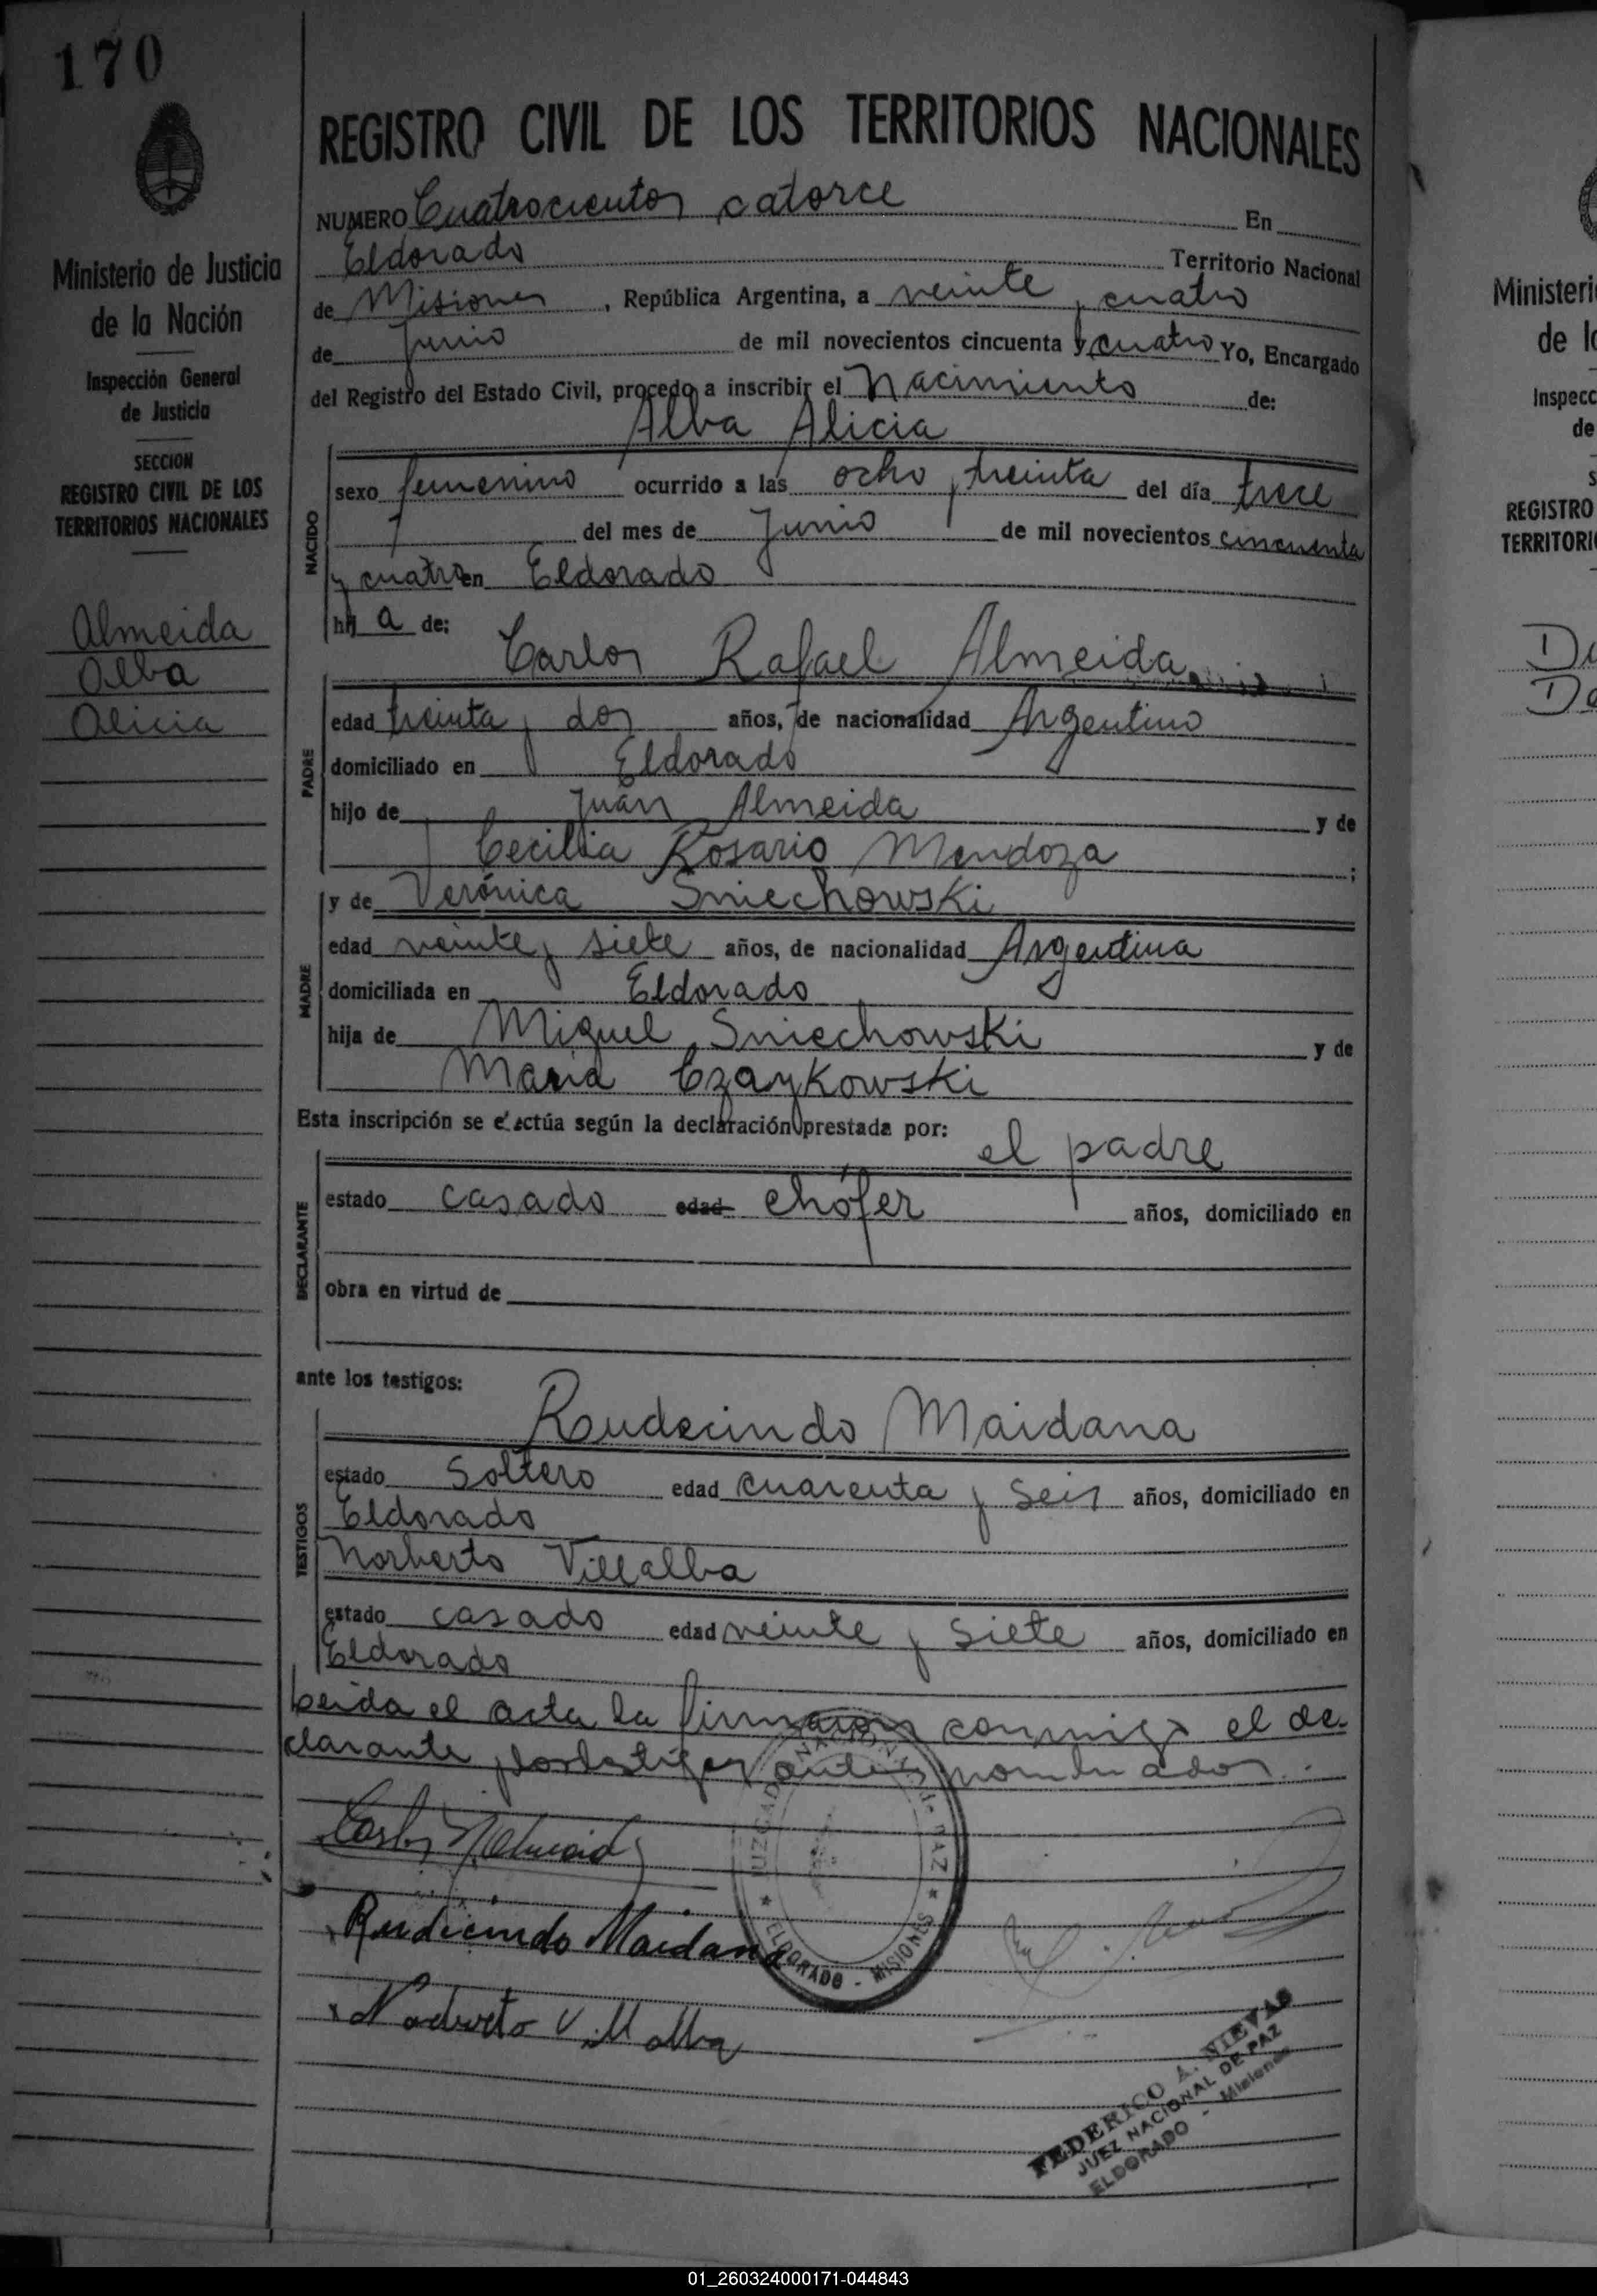 170
Ministerio de Justicia
de la Nación
Inspección General
de Justicia
SECCION
REGISTRO CIVIL DE LOS
TERRITORIOS NACIONALES
Almeida
Alba
Alicia
REGISTRO CIVIL DE LOS TERRITORIOS NACIONALES
NUMERO Cuatrocientos catorce En
Eldorado Territorio Nacional
de Misiones, República Argentina, a veinte y cuatro
de Junio de mil novecientos cincuenta y cuatro Yo, Encargado
del Registro del Estado Civil, procedo a inscribir el Nacimiento de:
Alba Alicia
NACIDO
sexo femenino ocurrido a las ocho y treinta del día trece
del mes de Junio de mil novecientos cincuenta
y cuatro en Eldorado
hij a de:
Carlos Rafael Almeida
PADRE
edad treinta y dos años, de nacionalidad Argentino
domiciliado en Eldorado
hijo de Juan Almeida y de
Cecilia Rosario Mendoza ;
MADRE
y de Verónica Sniechowski
edad veinte y siete años, de nacionalidad Argentina
domiciliada en Eldorado
hija de Miguel Sniechowski y de
Maria Czaykowski
Esta inscripción se efectúa según la declaración prestada por:
el padre
DECLARANTE
estado casado edad chófer años, domiciliado en
obra en virtud de
ante los testigos:
Rudecindo Maidana
TESTIGOS
estado Soltero edad cuarenta y seis años, domiciliado en
Eldorado
Norberto Villalba
estado casado edad veinte y siete años, domiciliado en
Eldorado
Leida el acta la firmaron conmigo el de-
clarante y los testigos antes nombrados.
Carlos R Almeida
JUZGADO NACIONAL DE PAZ
ELDORADO - MISIONES
Rudicindo Maidana
Norberto Villalba
FEDERICO A. NIEVAS
JUEZ NACIONAL DE PAZ
ELDORADO - Misiones
Ministeri
de l
Inspecc
de
S
REGISTRO
TERRITORI
01_260324000171-044843